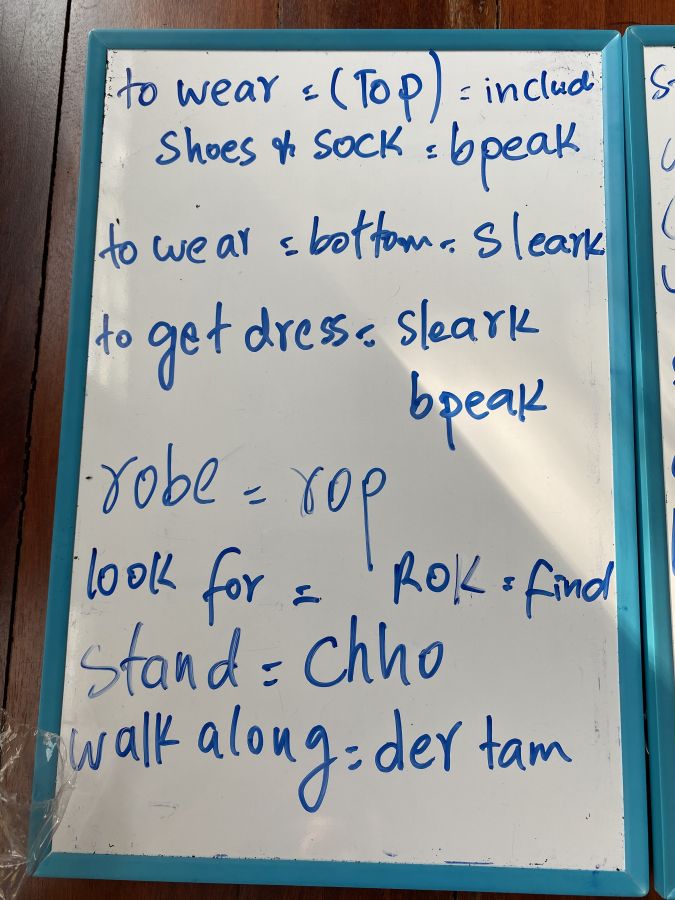 to wear = (Top) = includ
shoes & sock = bpeak
to wear = bottom = sleark
to get dress = sleark
bpeak
robe = rop
look for = Rok = find
stand = Chho
walk along = der tam